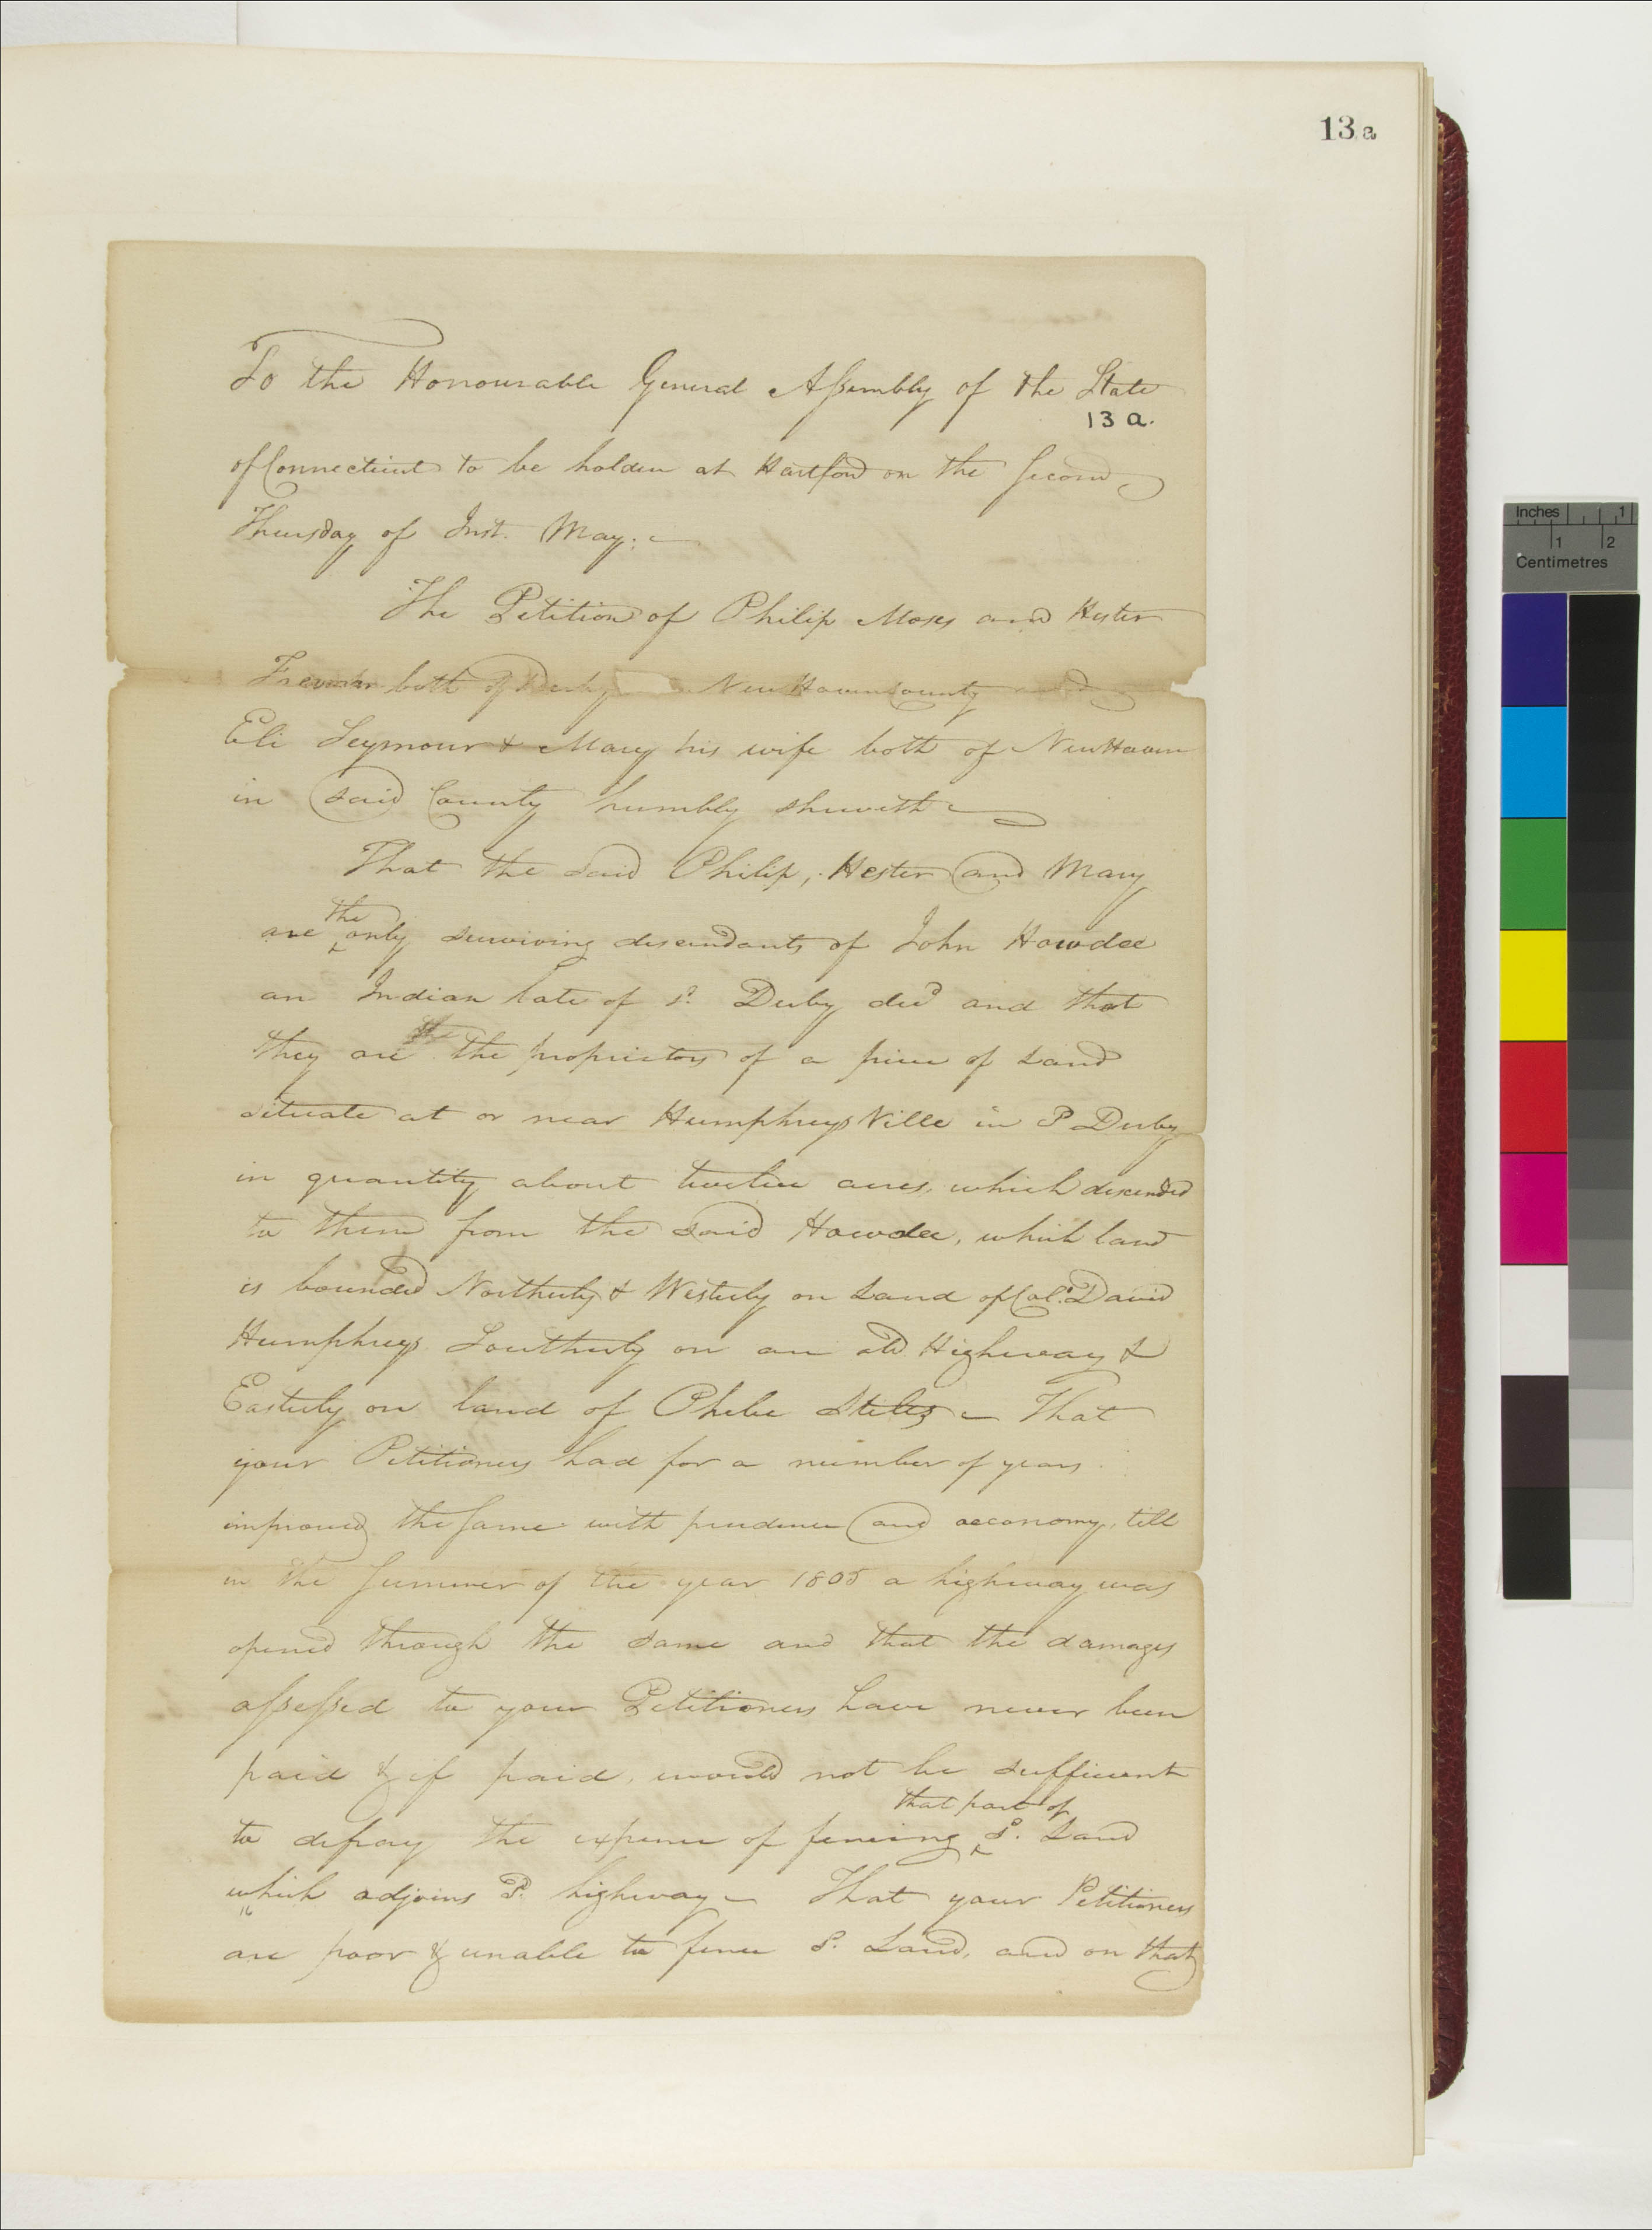 13a
To the Honourable General Assembly of the State
13 a.
of Connecticut to be holden at Hartford on the Second
Thursday of Inst. May: —
The Petition of Philip Moses and Hester
Freeman both of Derby New Haven County and
Eli Seymour & Mary his wife both of New Haven
in said County humbly sheweth —
That the said Philip, Hester and Mary
the
are only surviving descendants of John Howdee
an Indian late of sd. Derby decd and that
they are the proprietors of a piece of Land
situate at or near Humphreys Ville in sd Derby
in quantity about twelve acres, which descended
to them from the said Howdee, which land
is bounded Northerly & Westerly on Land of Col. David
Humphreys Southerly on an old Highway &
Easterly on land of Phebe Stiles — That
your Petitioners had for a number of years
improved the same with prudence and oeconomy, till
in the Summer of the year 1805 a highway was
opened through the same and that the damages
assessed to your Petitioners have never been
paid & if paid, would not be sufficient
that part of
to defray the expence of fencing sd. Land
which adjoins sd. highway — That your Petitioners
are poor & unable to fence sd. Land, and on that
Inches 1
1 2
Centimetres